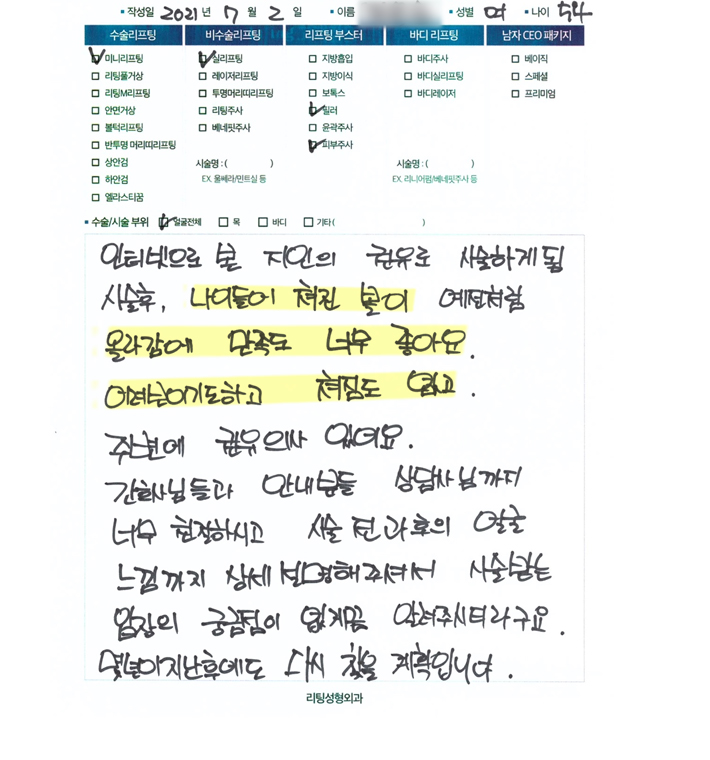 • 작성일 2021 년 7 월 2 일 • 이름 • 성별 여 • 나이 54
수술리프팅 비수술리프팅 리프팅 부스터 바디 리프팅 남자 CEO 패키지
미니리프팅 실리프팅 지방흡입 바디주사 베이직
리팅풀거상 레이저리프팅 지방이식 바디실리프팅 스페셜
리팅M리프팅 투명머리띠리프팅 보톡스 바디레이저 프리미엄
안면거상 리팅주사 필러
볼턱리프팅 베네핏주사 윤곽주사
반투명 머리띠리프팅 피부주사
상안검 시술명 : ( ) 시술명 : ( )
하안검 EX. 울쎄라/민트실 등 EX. 리니어펌/베네핏주사 등
엘라스티꿈
• 수술/시술 부위 얼굴전체 목 바디 기타 ( )
인터넷으로 본 지인의 권유로 시술하게됨
시술후, 나이들어 쳐진 볼이 예전처럼
올라감에 만족도 너무 좋아요.
어려보이기도하고 쳐짐도 없고.
주변에 권유의사 있어요.
간호사님들과 안내분들 상담사님까지
너무 친절하시고 시술 전과후의 얼굴
느낌까지 상세 설명해주셔서 시술받는
입장의 궁금점이 없게끔 알려주시더라구요.
몇년이지난후에도 다시 찾을 계획입니다.
리팅성형외과